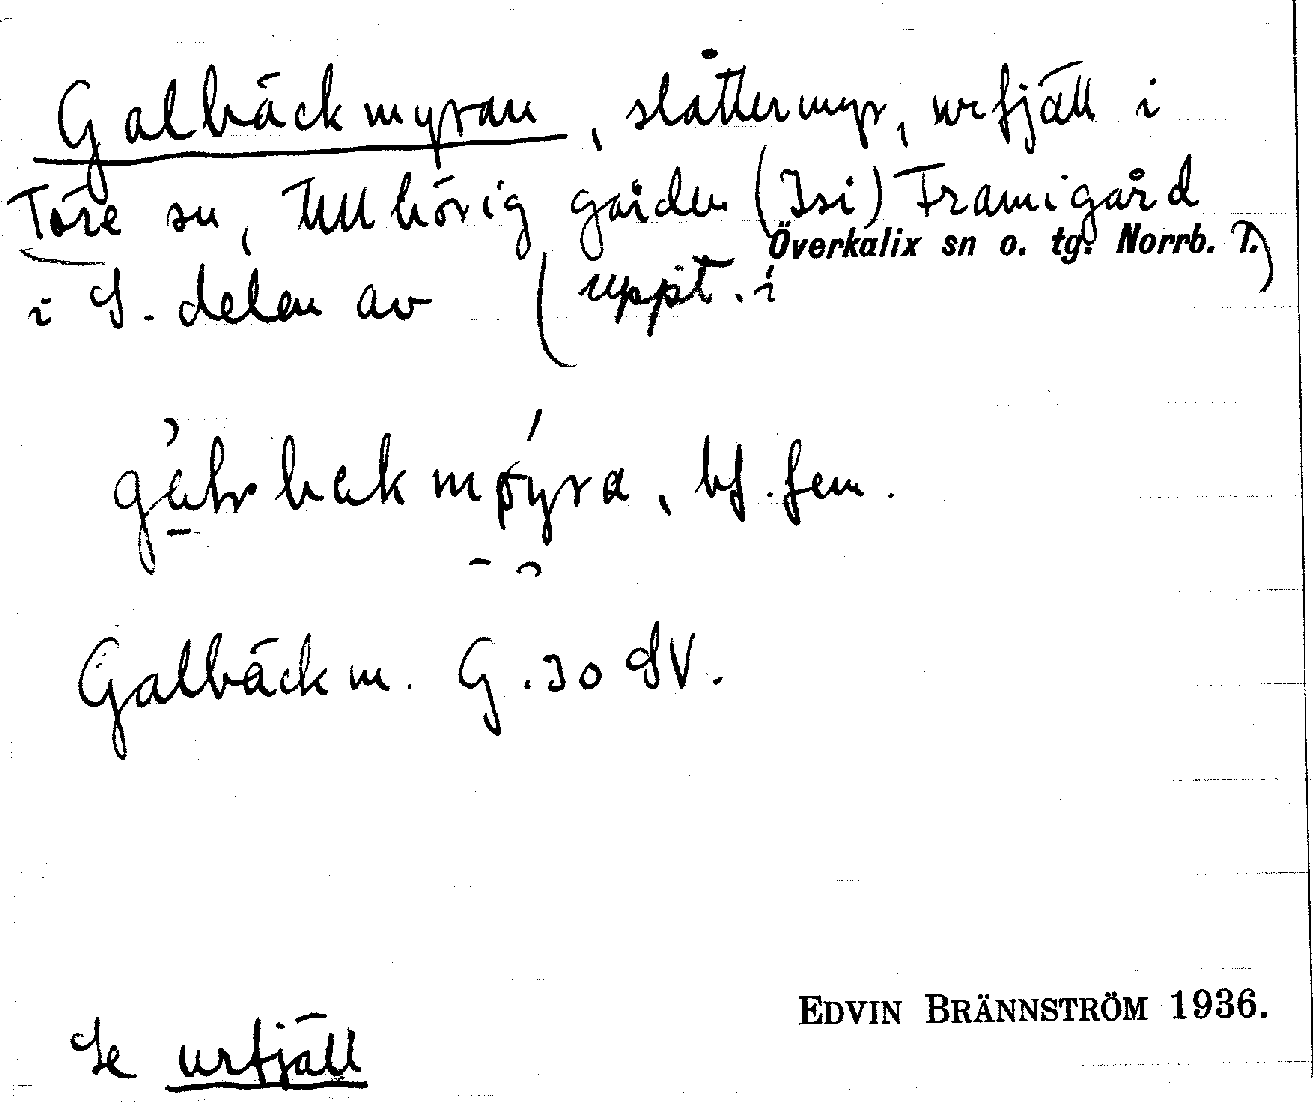 Galbäckmyran, slåttermyr, urfjäll i
Töre sn, tillhörig gården (Isi) Framigård
i S. delen av (uppt. i Överkalix sn o. tg. Norrb. l.)
bf. fem.
Galbäckm. G. 30 SV.
EDVIN BRÄNNSTRÖM 1936.
Se urfjäll